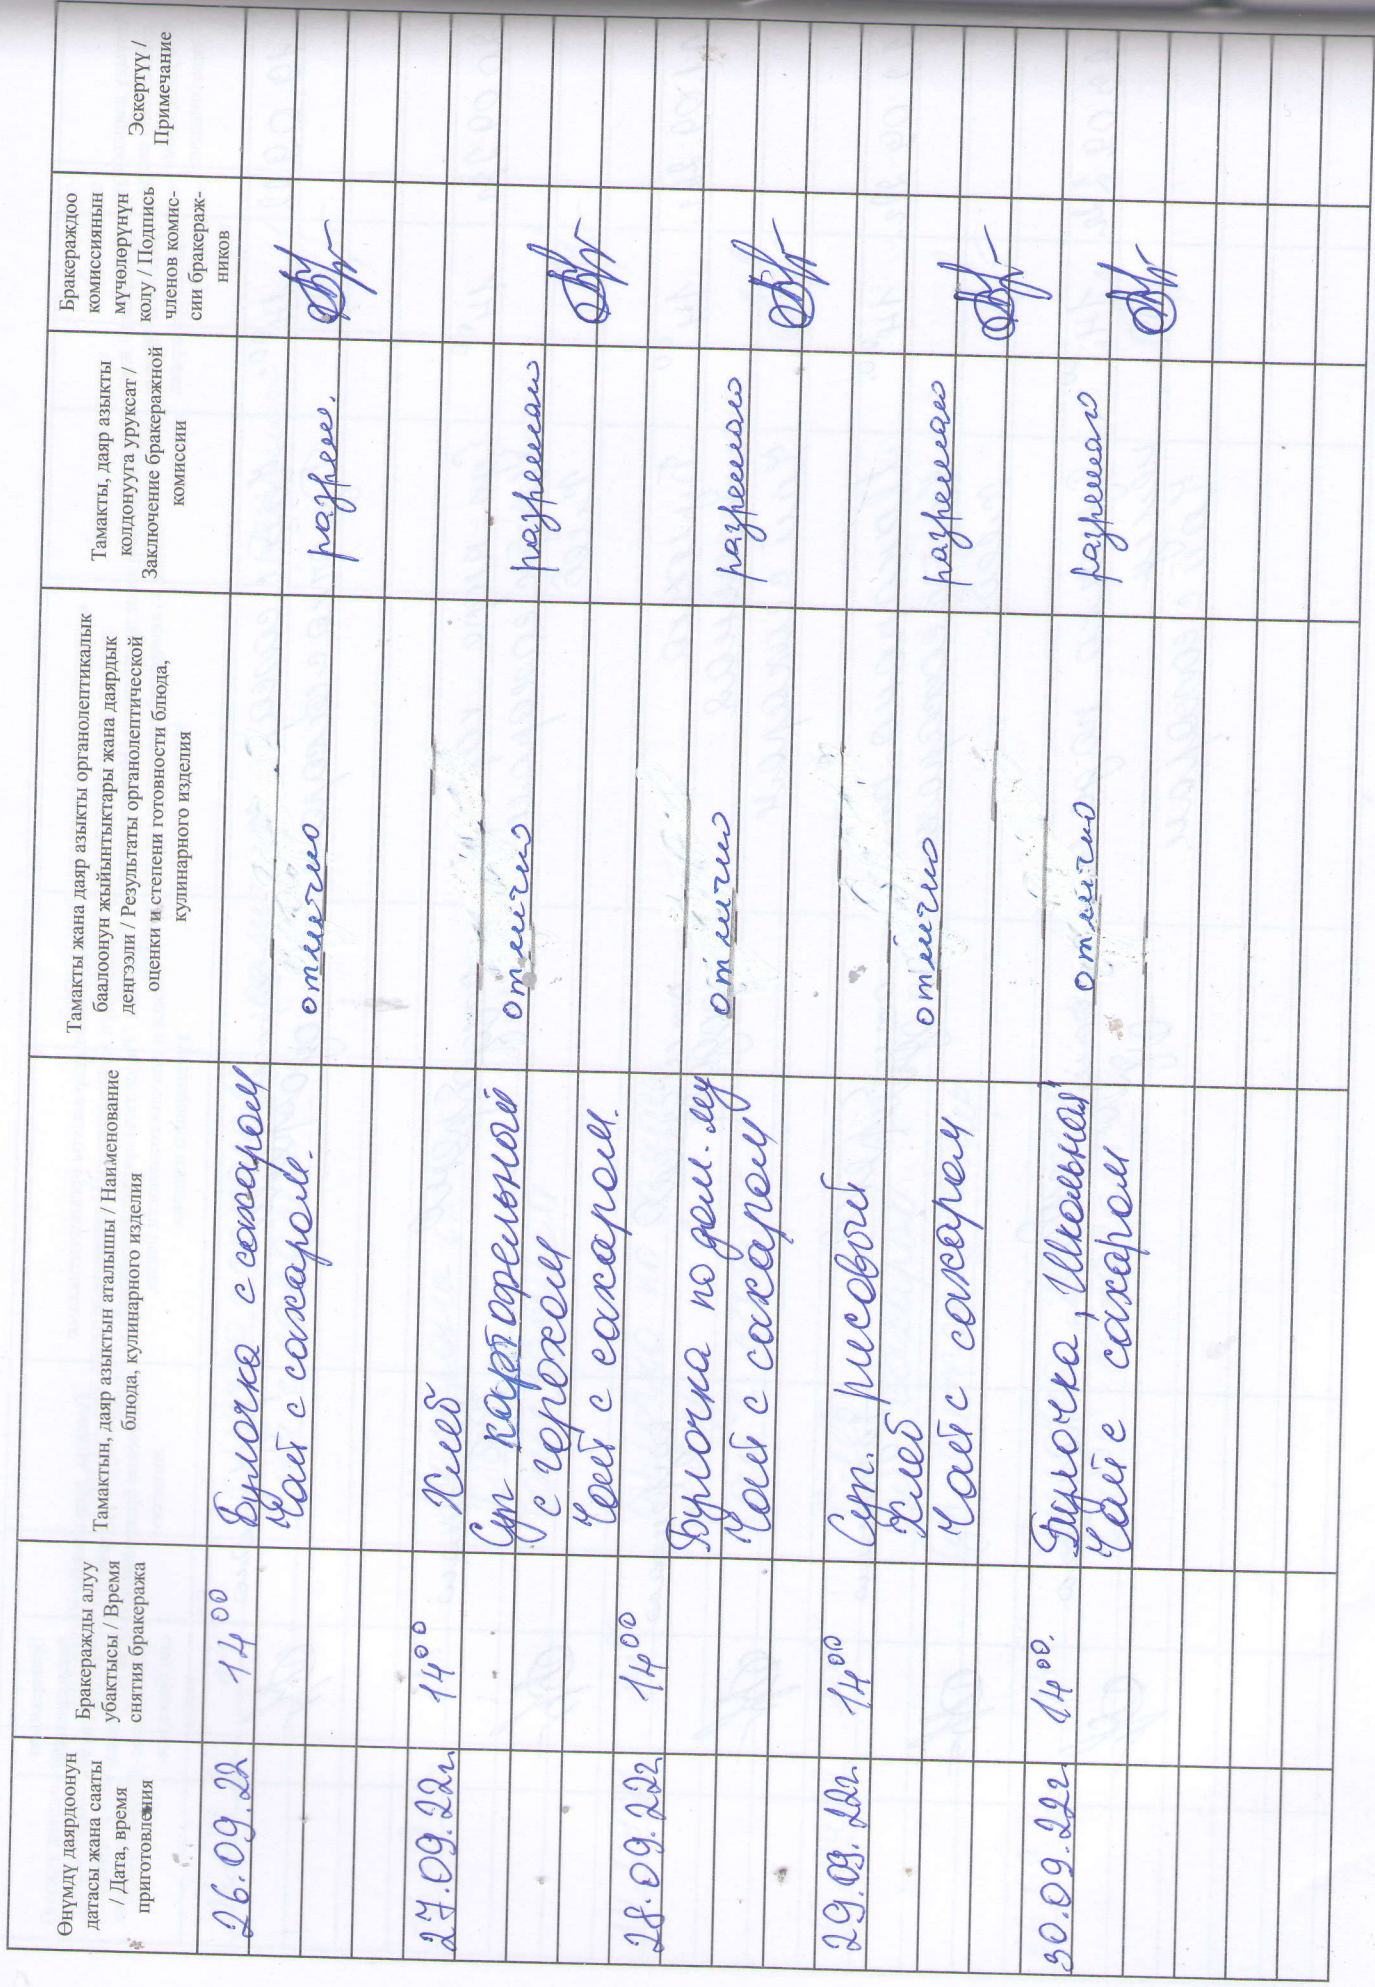 Өнүмдү даярдоонун
датасы жана сааты
/ Дата, время
приготовления
Бракеражды алуу
убактысы / Время
снятия бракеража
Тамактын, даяр азыктын аталышы / Наименование
блюда, кулинарного изделия
Тамакты жана даяр азыкты органолептикалык
баалоонун жыйынтыктары жана даярдык
деңгээли / Результаты органолептической
оценки и степени готовности блюда,
кулинарного изделия
Тамакты, даяр азыкты
колдонууга уруксат /
Заключение бракеражной
комиссии
Бракераждоо
комиссиянын
мүчөлөрүнүн
колу / Подпись
членов комис-
сии бракераж-
ников
Эскертүү /
Примечание
26.09.22 14 00 Булочка с сахаром
Чай с сахаром. отлично разреш.
27.09.22г 14 00 Хлеб
Суп картофельный отлично разрешаю
с горохом
Чай с сахаром.
28.09.22г 14 00
Булочка по дом. му отлично разрешаю
Чай с сахаром
29.09.22г. 14 00 Суп. рисовый
Хлеб отлично разрешаю
Чай с сахаром
30.09.22г. 14 00. Булочка "Школьная" отлично разрешаю
Чай с сахаром